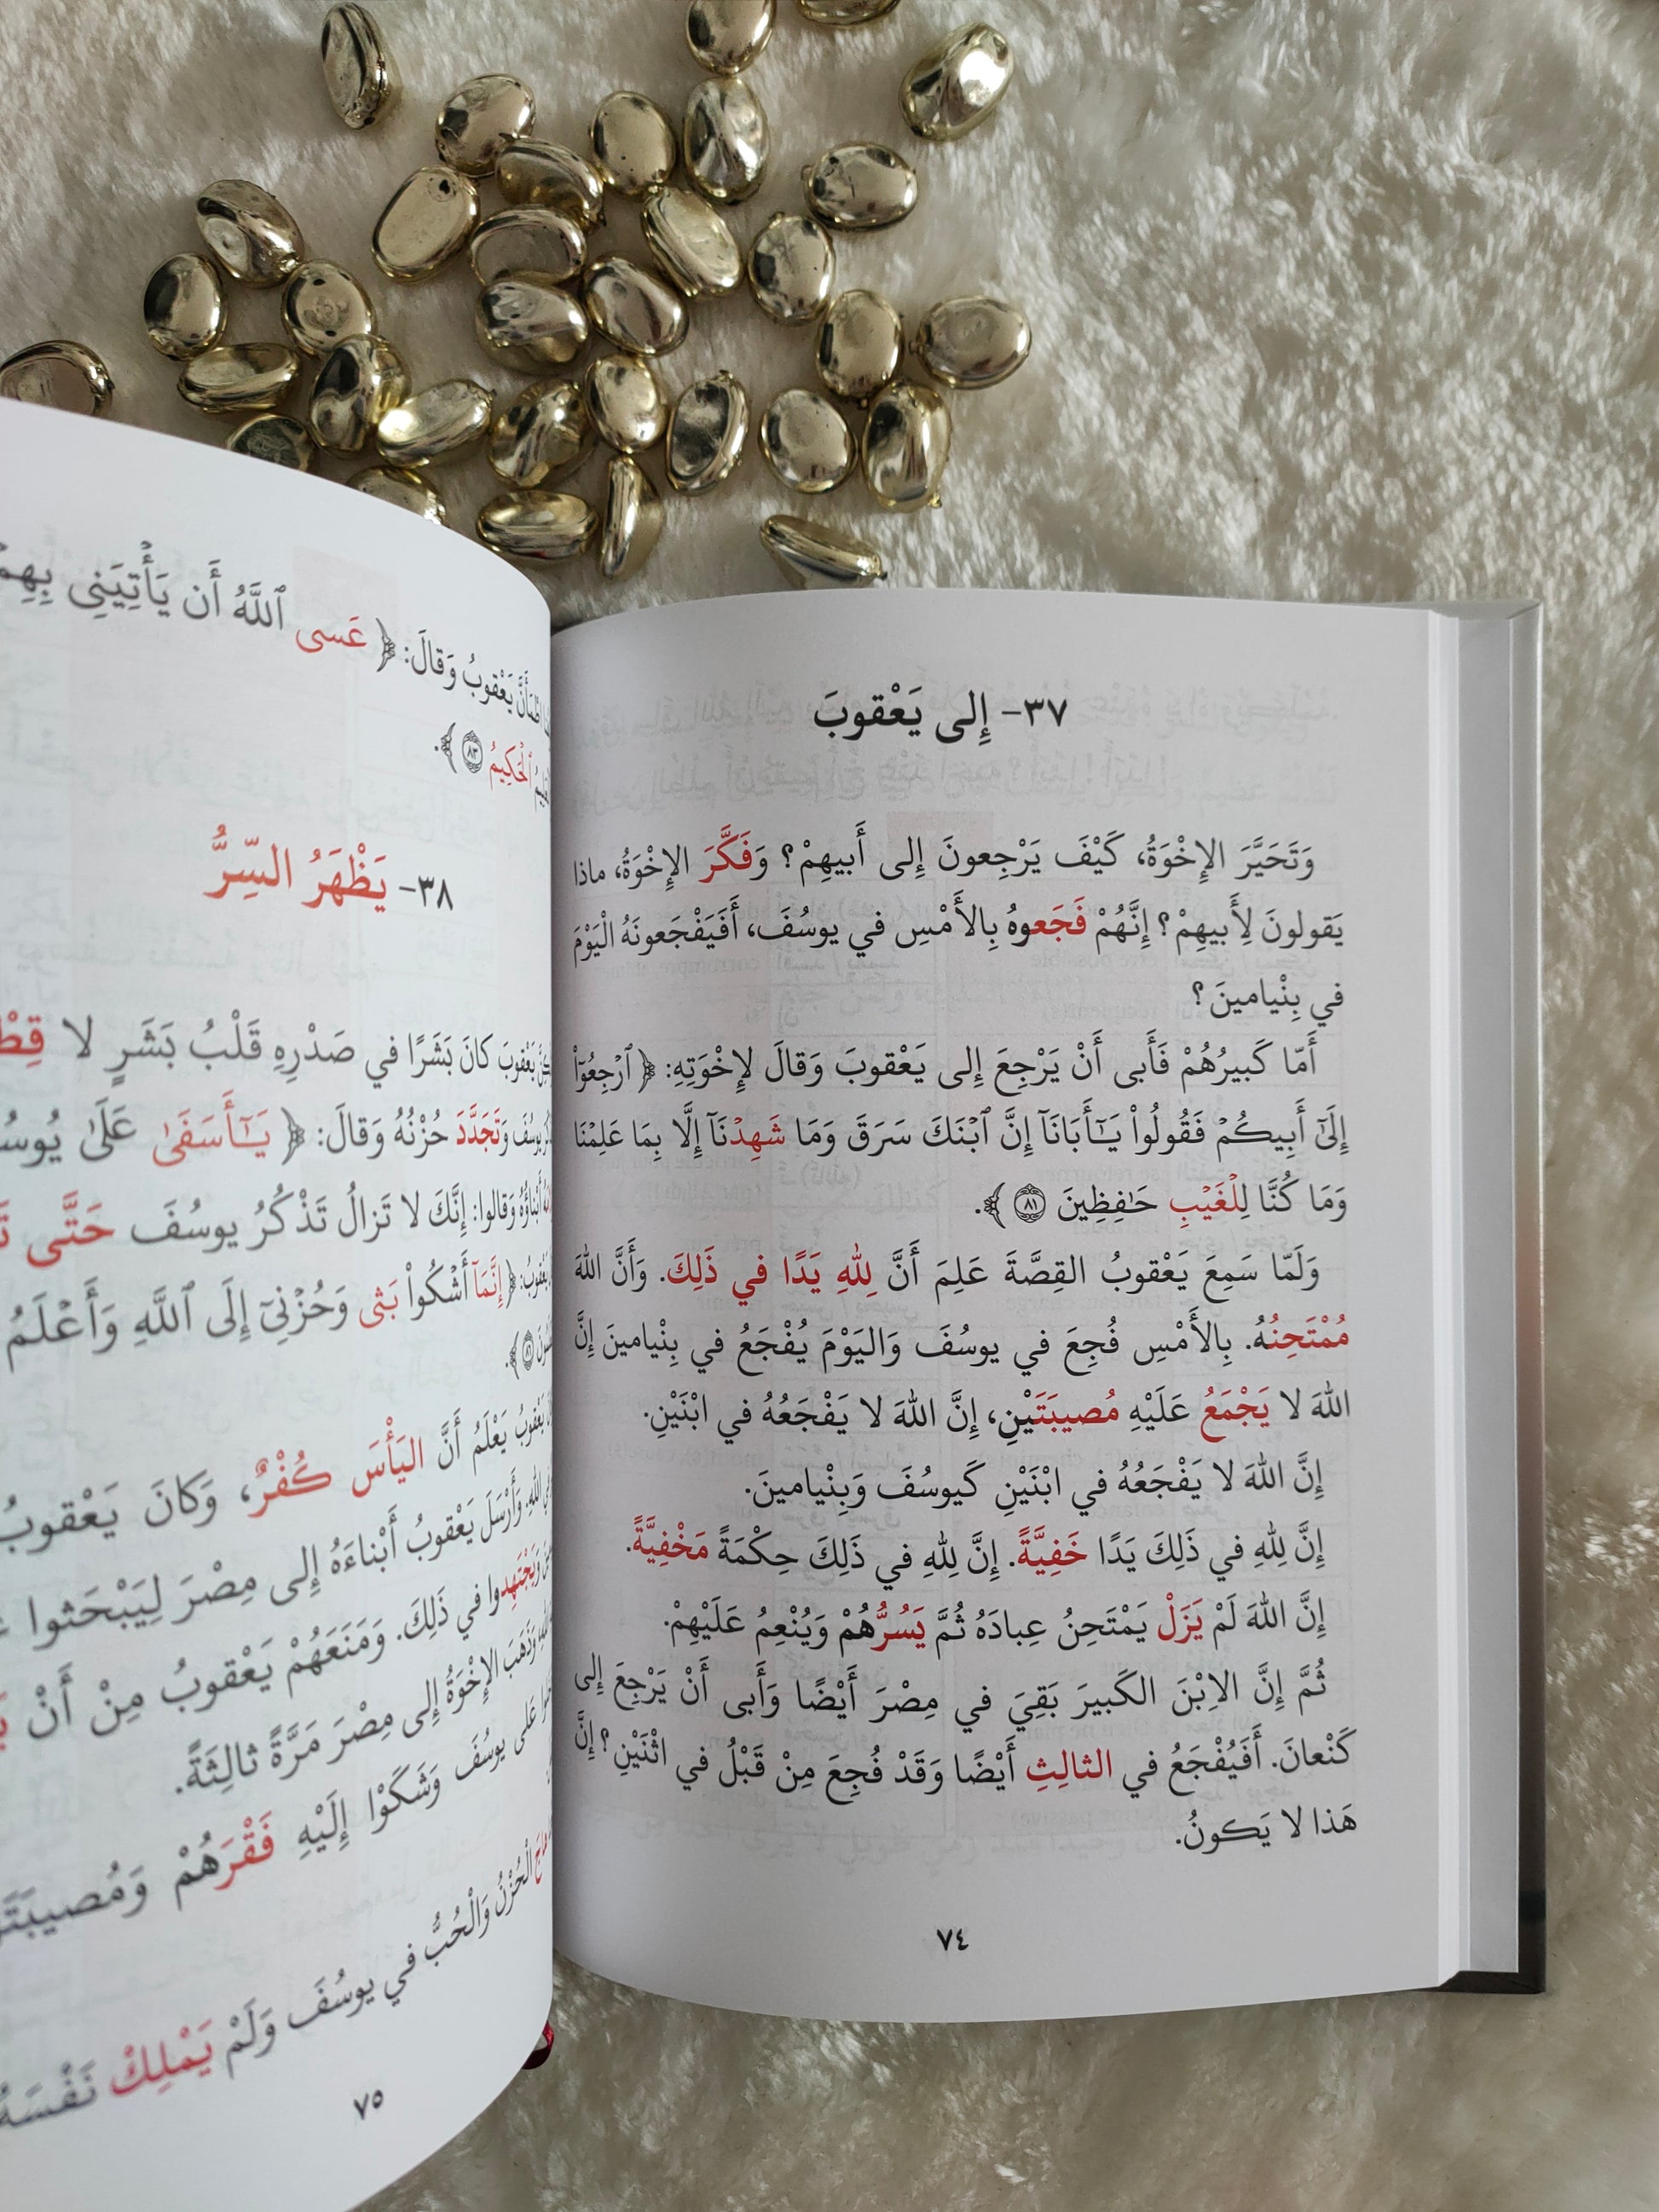 ٣٧- إِلى يَعْقوبَ
وَتَحَيَّرَ الإِخْوَةُ، كَيْفَ يَرْجِعونَ إِلى أَبيهِمْ؟ وَفَكَّرَ الإِخْوَةُ، ماذا
يَقولونَ لِأَبيهِمْ؟ إِنَّهُمْ فَجَعوهُ بِالأَمْسِ في يوسُفَ، أَفَيَفْجَعونَهُ الْيَوْمَ
في بِنْيامينَ؟
أَمّا كَبيرُهُمْ فَأَبى أَنْ يَرْجِعَ إِلى يَعْقوبَ وَقالَ لِإِخْوَتِهِ: ﴿ ٱرْجِعُوٓاْ
إِلَىٰٓ أَبِيكُمْ فَقُولُواْ يَـٰٓأَبَانَآ إِنَّ ٱبْنَكَ سَرَقَ وَمَا شَهِدْنَآ إِلَّا بِمَا عَلِمْنَا
وَمَا كُنَّا لِلْغَيْبِ حَـٰفِظِينَ ٨١ ﴾.
وَلَمّا سَمِعَ يَعْقوبُ القِصَّةَ عَلِمَ أَنَّ لِلهِ يَدًا في ذَلِكَ. وَأَنَّ اللهَ
مُمْتَحِنُهُ. بِالأَمْسِ فُجِعَ في يوسُفَ وَاليَوْمَ يُفْجَعُ في بِنْيامينَ إِنَّ
اللهَ لا يَجْمَعُ عَلَيْهِ مُصيبَتَيْنِ، إِنَّ اللهَ لا يَفْجَعُهُ في ابْنَيْنِ.
إِنَّ اللهَ لا يَفْجَعُهُ في ابْنَيْنِ كَيوسُفَ وَبِنْيامينَ.
إِنَّ لِلهِ في ذَلِكَ يَدًا خَفِيَّةً. إِنَّ لِلهِ في ذَلِكَ حِكْمَةً مَخْفِيَّةً.
إِنَّ اللهَ لَمْ يَزَلْ يَمْتَحِنُ عِبادَهُ ثُمَّ يَسُرُّهُمْ وَيُنْعِمُ عَلَيْهِمْ.
ثُمَّ إِنَّ الاِبْنَ الكَبيرَ بَقِيَ في مِصْرَ أَيْضًا وَأَبى أَنْ يَرْجِعَ إِلى
كَنْعانَ. أَفَيُفْجَعُ في الثالِثِ أَيْضًا وَقَدْ فُجِعَ مِنْ قَبْلُ في اثْنَيْنِ؟ إِنَّ
هَذا لا يَكونُ.
٧٤
يَعْقوبُ وَقالَ: ﴿ عَسى ٱللَّهُ أَن يَأْتِيَنِى بِهِمْ
ٱلْحَكِيمُ ٨٣ ﴾.
٣٨- يَظْهَرُ السِّرُّ
يَعْقوبَ كانَ بَشَرًا في صَدْرِهِ قَلْبُ بَشَرٍ لا
يوسُفَ وَتَجَدَّدَ حُزْنُهُ وَقالَ: ﴿ يَـٰٓأَسَفَىٰ عَلَىٰ
أَبْناؤُهُ وَقالوا: إِنَّكَ لا تَزالُ تَذْكُرُ يوسُفَ حَتَّى
﴿ إِنَّمَآ أَشْكُواْ بَثِّى وَحُزْنِىٓ إِلَى ٱللَّهِ وَأَعْلَمُ
٨٦ ﴾.
يَعْقوبُ يَعْلَمُ أَنَّ اليَأْسَ كُفْرٌ، وَكانَ يَعْقوبُ
اللهِ. وَأَرْسَلَ يَعْقوبُ أَبْناءَهُ إِلى مِصْرَ لِيَبْحَثوا
وَيَجْتَهِدوا في ذَلِكَ. وَمَنَعَهُمْ يَعْقوبُ مِنْ أَنْ
وَذَهَبَ الإِخْوَةُ إِلى مِصْرَ مَرَّةً ثالِثَةً.
عَلى يوسُفَ وَشَكَوْا إِلَيْهِ فَقْرَهُمْ
الْحُزْنُ وَالْحُبُّ في يوسُفَ وَلَمْ يَمْلِكْ نَفْسَهُ
٧٥